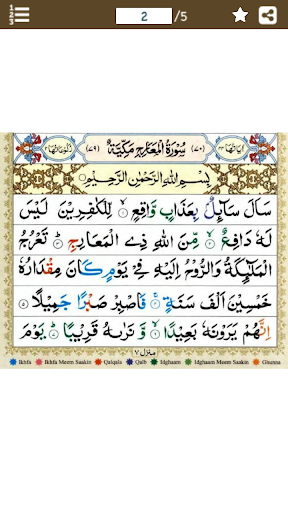 2 /5
اٰيَاتُهَا ٤٤ (٧٠) سُوْرَةُ الْمَعَارِجِ مَكِّيَّةٌ (٧٩) رُكُوْعَاتُهَا ٢
بِسْمِ اللّٰهِ الرَّحْمٰنِ الرَّحِيْمِ
سَاَلَ سَآىِٕلٌۢ بِعَذَابٍ وَّاقِعٍ ۙ١ لِّلْكٰفِرِيْنَ لَيْسَ
لَهٗ دَافِعٌ ۙ٢ مِّنَ اللّٰهِ ذِي الْمَعَارِجِ ؕ٣ تَعْرُجُ
الْمَلٰٓىِٕكَةُ وَالرُّوْحُ اِلَيْهِ فِيْ يَوْمٍ كَانَ مِقْدَارُهٗ
خَمْسِيْنَ اَلْفَ سَنَةٍ ۚ٤ فَاصْبِرْ صَبْرًا جَمِيْلًا ٥
اِنَّهُمْ يَرَوْنَهٗ بَعِيْدًا ۙ٦ وَّنَرٰىهُ قَرِيْبًا ؕ٧ يَوْمَ
منزل ٧
Ikhfa Ikhfa Meem Saakin Qalqala Qalb Idghaam Idghaam Meem Saakin Ghunna